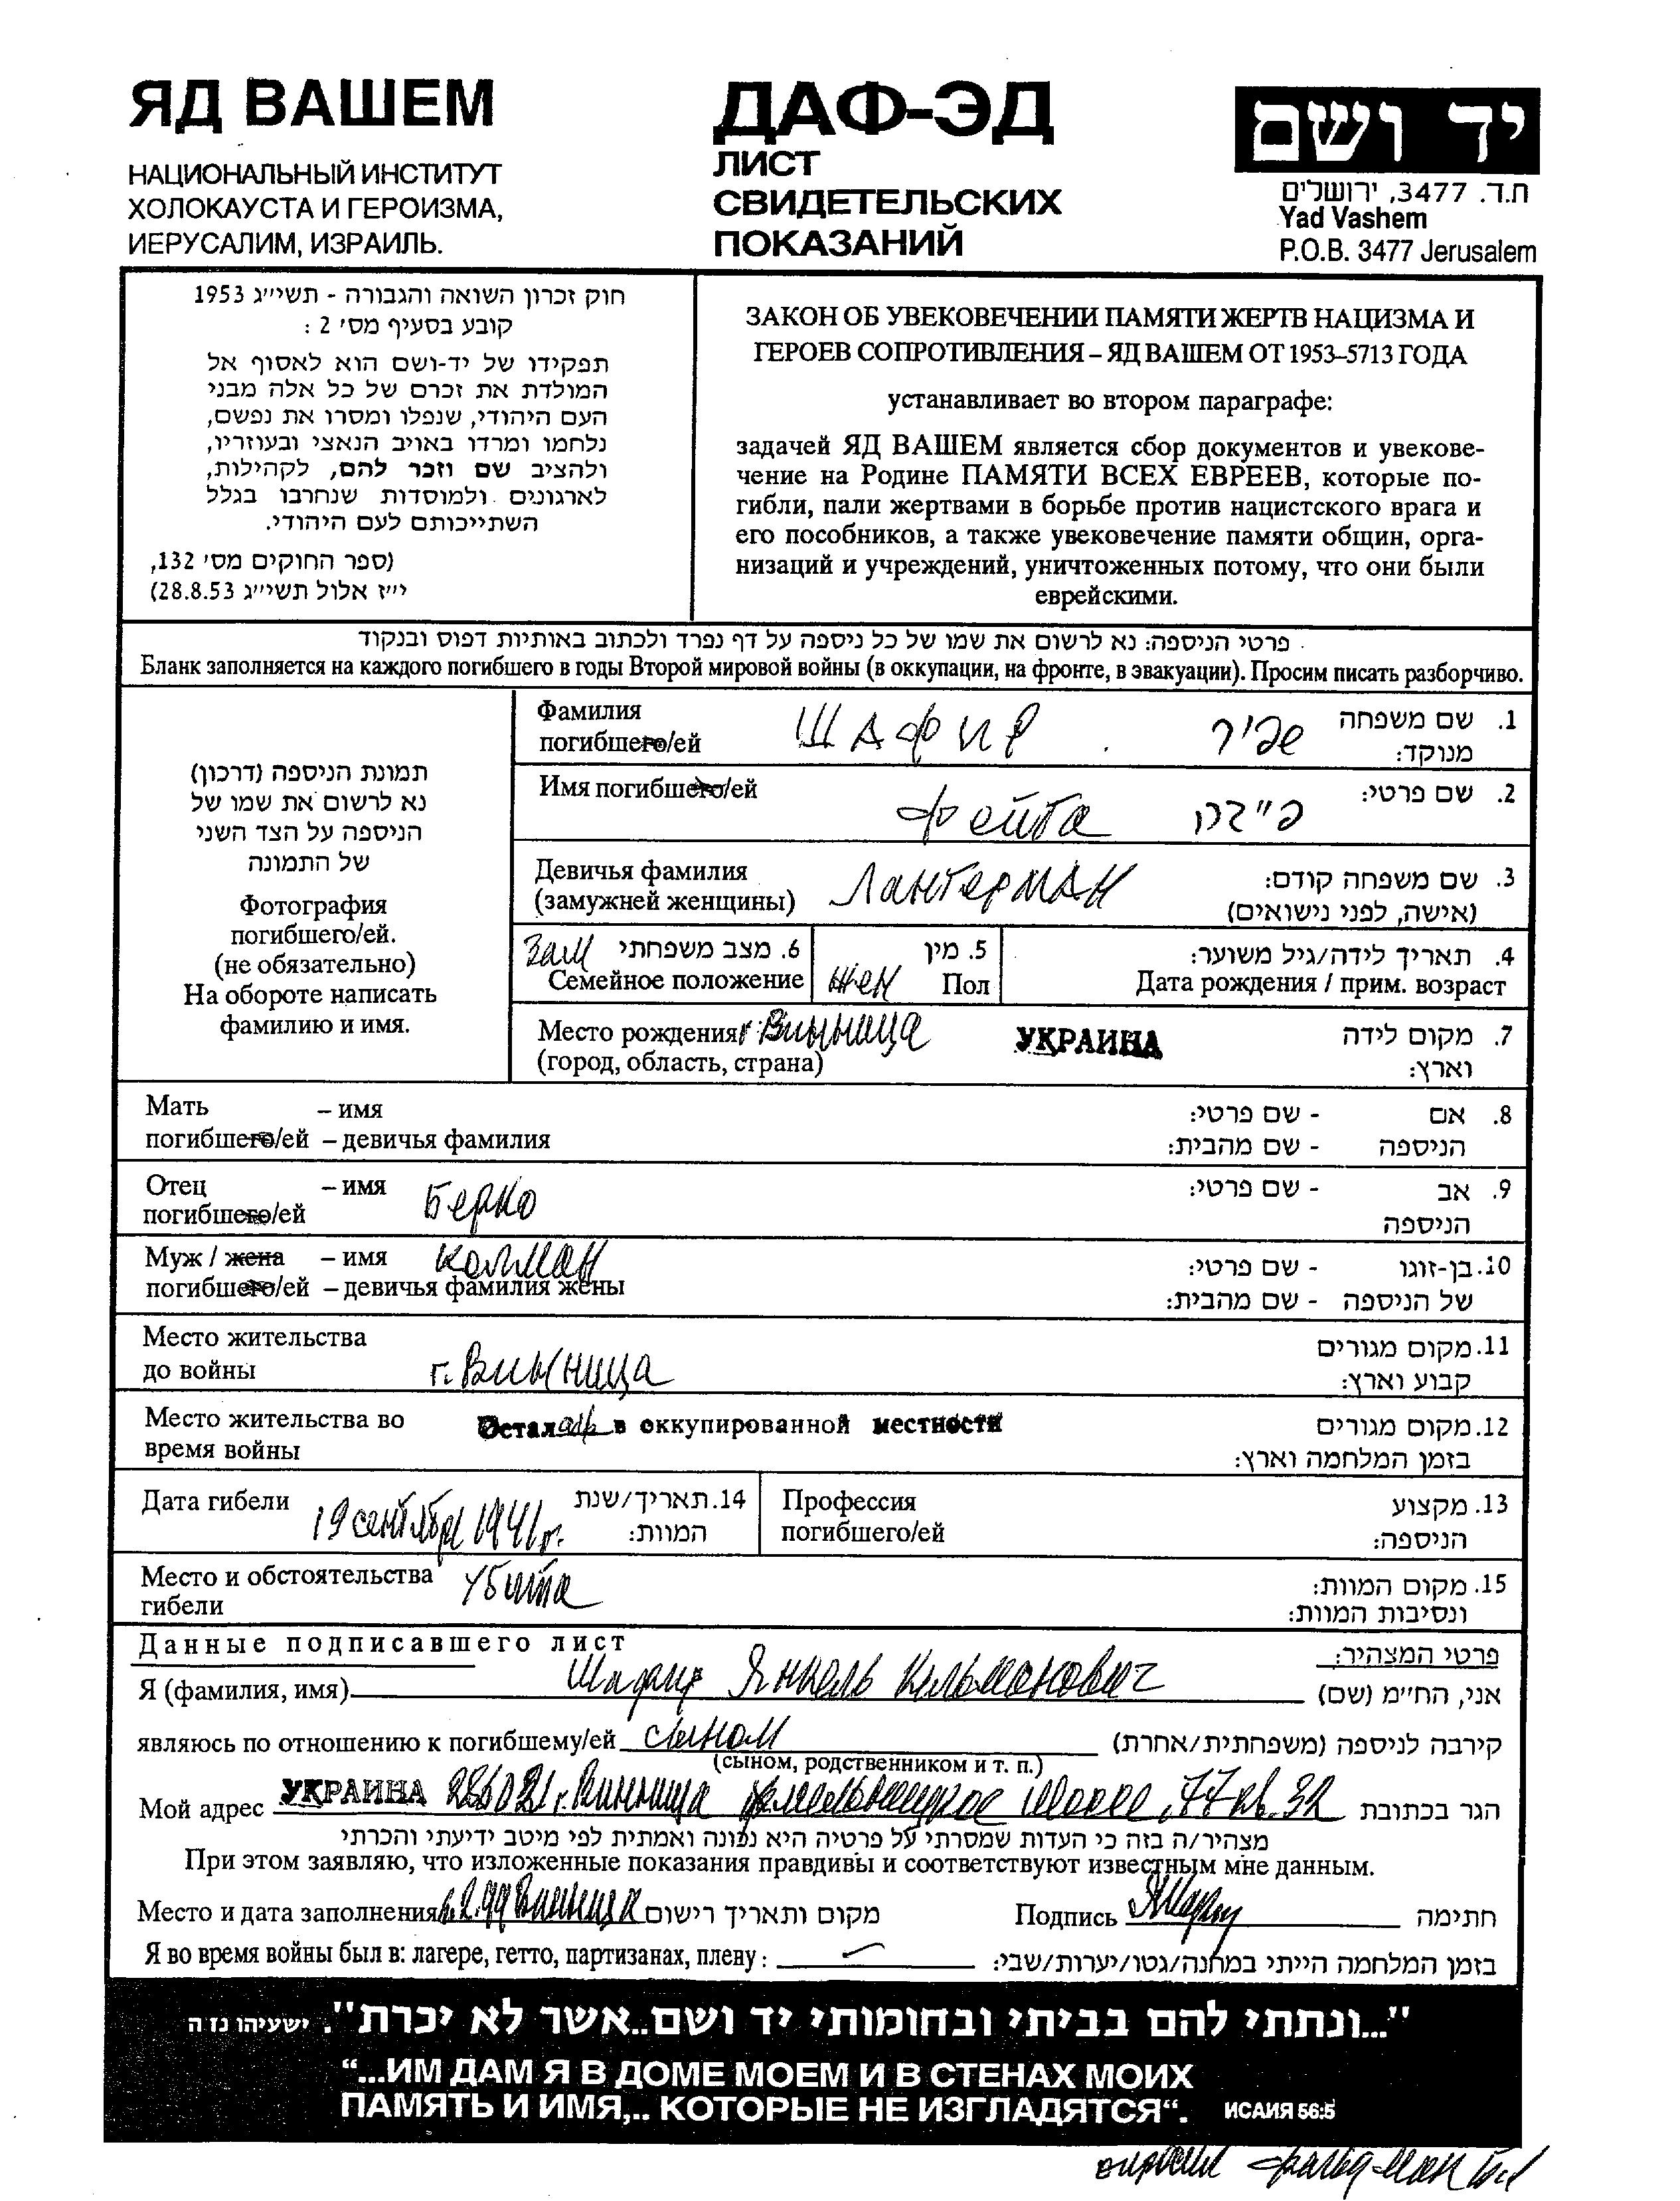 ЯД ВАШЕМ
НАЦИОНАЛЬНЫЙ ИНСТИТУТ
ХОЛОКАУСТА И ГЕРОИЗМА,
ИЕРУСАЛИМ, ИЗРАИЛЬ.
ДАФ-ЭД
ЛИСТ
СВИДЕТЕЛЬСКИХ
ПОКАЗАНИЙ
יד ושם
ת.ד. 3477, ירושלים
Yad Vashem
P.O.B. 3477 Jerusalem
חוק זכרון השואה והגבורה - תשי״ג 1953
קובע בסעיף מס׳ 2 :
תפקידו של יד-ושם הוא לאסוף אל
המולדת את זכרם של כל אלה מבני
העם היהודי, שנפלו ומסרו את נפשם,
נלחמו ומרדו באויב הנאצי ובעוזריו,
ולהציב שם וזכר להם, לקהילות,
לארגונים ולמוסדות שנחרבו בגלל
השתייכותם לעם היהודי.
(ספר החוקים מס׳ 132,
י״ז אלול תשי״ג 28.8.53)
ЗАКОН ОБ УВЕКОВЕЧЕНИИ ПАМЯТИ ЖЕРТВ НАЦИЗМА И
ГЕРОЕВ СОПРОТИВЛЕНИЯ – ЯД ВАШЕМ ОТ 1953–5713 ГОДА
устанавливает во втором параграфе:
задачей ЯД ВАШЕМ является сбор документов и увекове-
чение на Родине ПАМЯТИ ВСЕХ ЕВРЕЕВ, которые по-
гибли, пали жертвами в борьбе против нацистского врага и
его пособников, а также увековечение памяти общин, орга-
низаций и учреждений, уничтоженных потому, что они были
еврейскими.
פרטי הניספה: נא לרשום את שמו של כל ניספה על דף נפרד ולכתוב באותיות דפוס ובנקוד
Бланк заполняется на каждого погибшего в годы Второй мировой войны (в оккупации, на фронте, в эвакуации). Просим писать разборчиво.
תמונת הניספה (דרכון)
נא לרשום את שמו של
הניספה על הצד השני
של התמונה
Фотография
погибшего/ей.
(не обязательно)
На обороте написать
фамилию и имя.
Фамилия Шафир שפיר 1. שם משפחה
погибшего/ей מנוקד:
Имя погибшего/ей Фейга פייגה 2. שם פרטי:
Девичья фамилия Лантерман 3. שם משפחה קודם:
(замужней женщины) (אישה, לפני נישואים)
Зам 6. מצב משפחתי 5. מין 4. תאריך לידה/גיל משוער:
Семейное положение жен Пол Дата рождения / прим. возраст
Место рождения г Винница УКРАИНА 7. מקום לידה
(город, область, страна) וארץ:
Мать – имя 8. אם - שם פרטי:
погибшего/ей – девичья фамилия הניספה - שם מהבית:
Отец – имя Берко 9. אב - שם פרטי:
погибшего/ей הניספה
Муж / жена – имя Колман 10. בן-זוגו - שם פרטי:
погибшего/ей – девичья фамилия жены של הניספה - שם מהבית:
Место жительства 11. מקום מגורים
до войны г. Винница קבוע וארץ:
Место жительства во Осталась в оккупированной местности 12. מקום מגורים
время войны בזמן המלחמה וארץ:
Дата гибели 19 сентября 1941г. 14. תאריך/שנת המוות:
Профессия 13. מקצוע
погибшего/ей הניספה:
Место и обстоятельства Убита 15. מקום המוות:
гибели ונסיבות המוות:
Данные подписавшего лист פרטי המצהיר:
Я (фамилия, имя) Шафир Янкель Кельманович אני, הח״מ (שם)
являюсь по отношению к погибшему/ей сыном קירבה לניספה (משפחתית/אחרת)
(сыном, родственником и т. п.)
Мой адрес УКРАИНА 286021 г. Винница Хмельницкое шоссе, 77 кв. 32 הגר בכתובת
מצהיר/ה בזה כי העדות שמסרתי על פרטיה היא נכונה ואמתית לפי מיטב ידיעתי והכרתי
При этом заявляю, что изложенные показания правдивы и соответствуют известным мне данным.
Место и дата заполнения Винница מקום ותאריך רישום Подпись חתימה
Я во время войны был в: лагере, гетто, партизанах, плену: בזמן המלחמה הייתי במחנה/גטו/יערות/שבי:
"...ונתתי להם בביתי ובחומותי יד ושם..אשר לא יכרת". ישעיהו נז ה
“...ИМ ДАМ Я В ДОМЕ МОЕМ И В СТЕНАХ МОИХ
ПАМЯТЬ И ИМЯ,.. КОТОРЫЕ НЕ ИЗГЛАДЯТСЯ“. ИСАИЯ 56:5